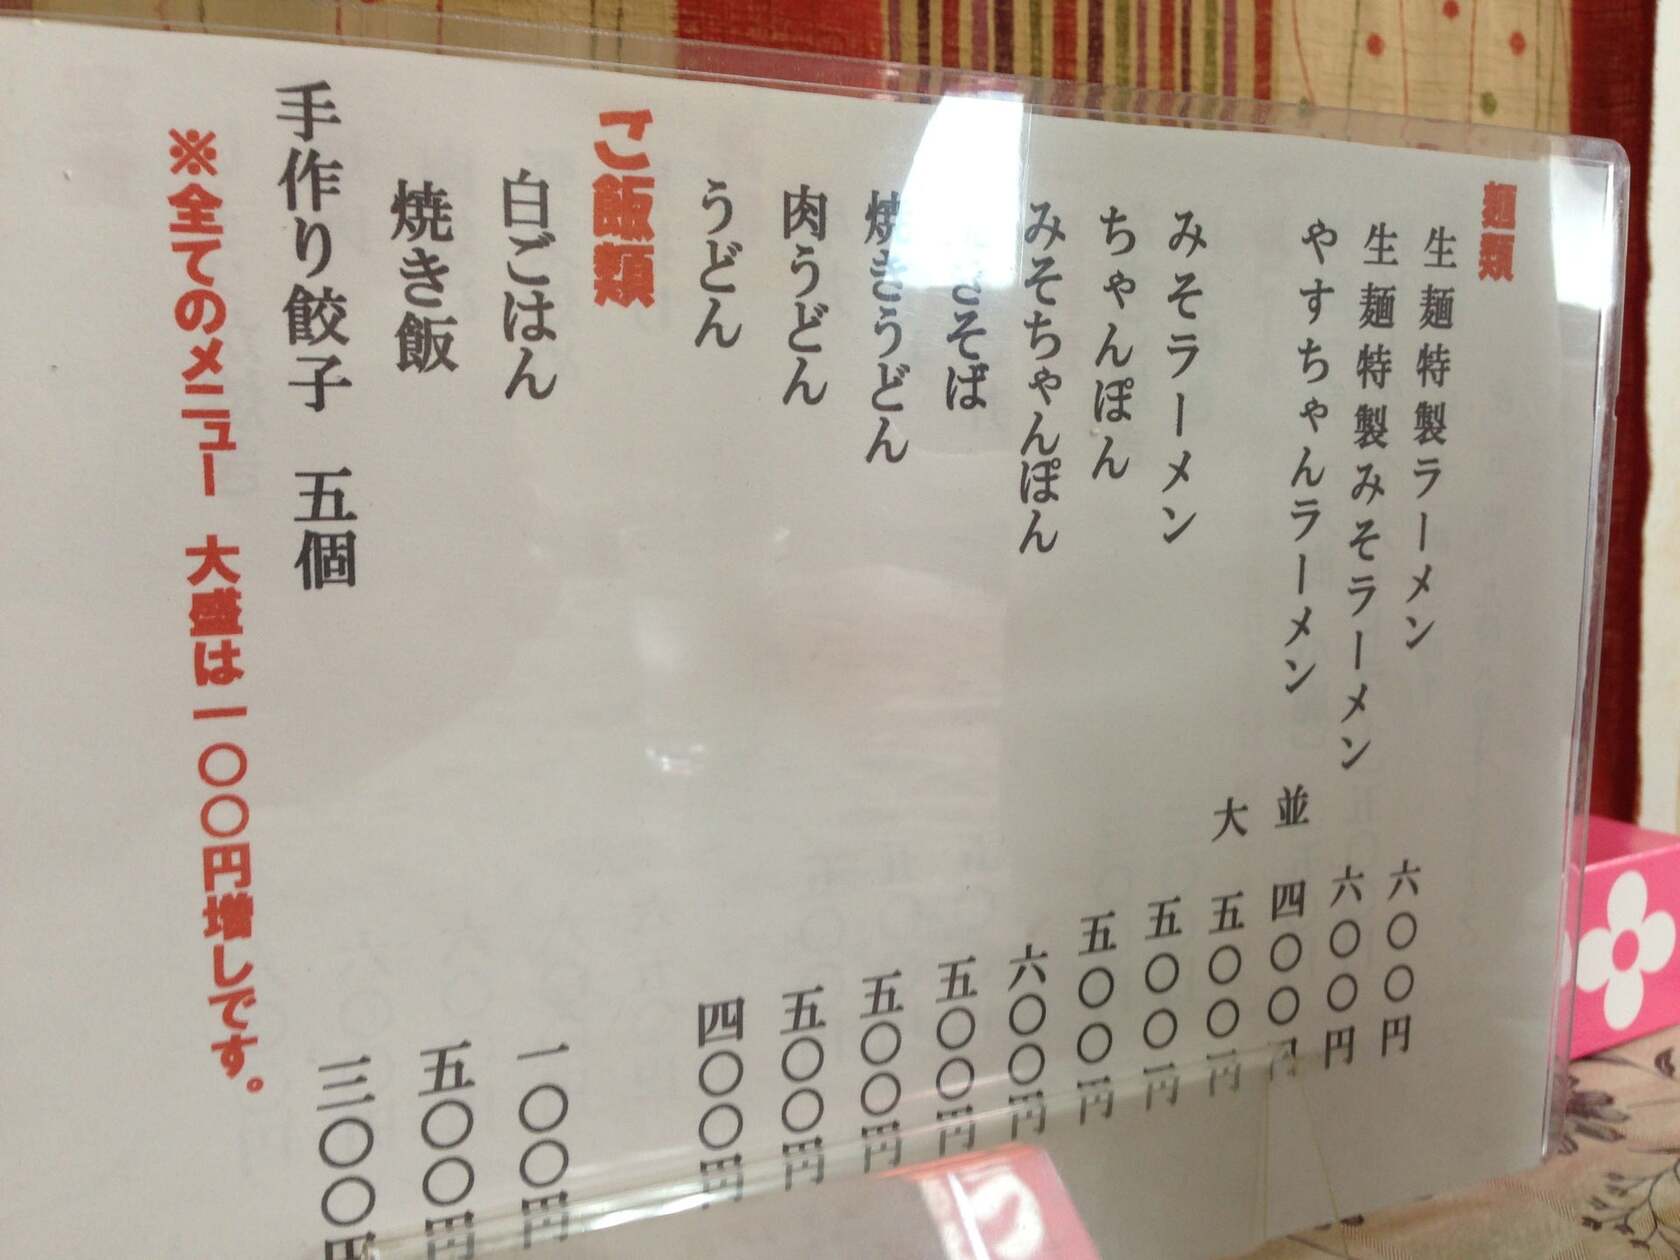 麺類
生麺特製ラーメン 六〇〇円
生麺特製みそラーメン 六〇〇円
やすちゃんラーメン 並 四〇〇円
大 五〇〇円
みそラーメン 五〇〇円
ちゃんぽん 五〇〇円
みそちゃんぽん 六〇〇円
きそば 五〇〇円
焼きうどん 五〇〇円
肉うどん 五〇〇円
うどん 四〇〇円
ご飯類
白ごはん 一〇〇円
焼き飯 五〇〇円
手作り餃子 五個 三〇〇円
※全てのメニュー 大盛は一〇〇円増しです。